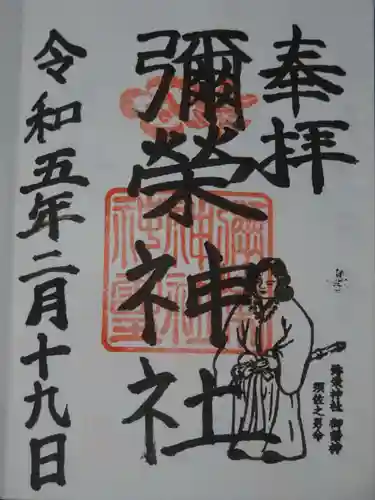 奉拝
彌榮神社
彌榮神社 御祭神
須佐之男命
令和五年二月十九日